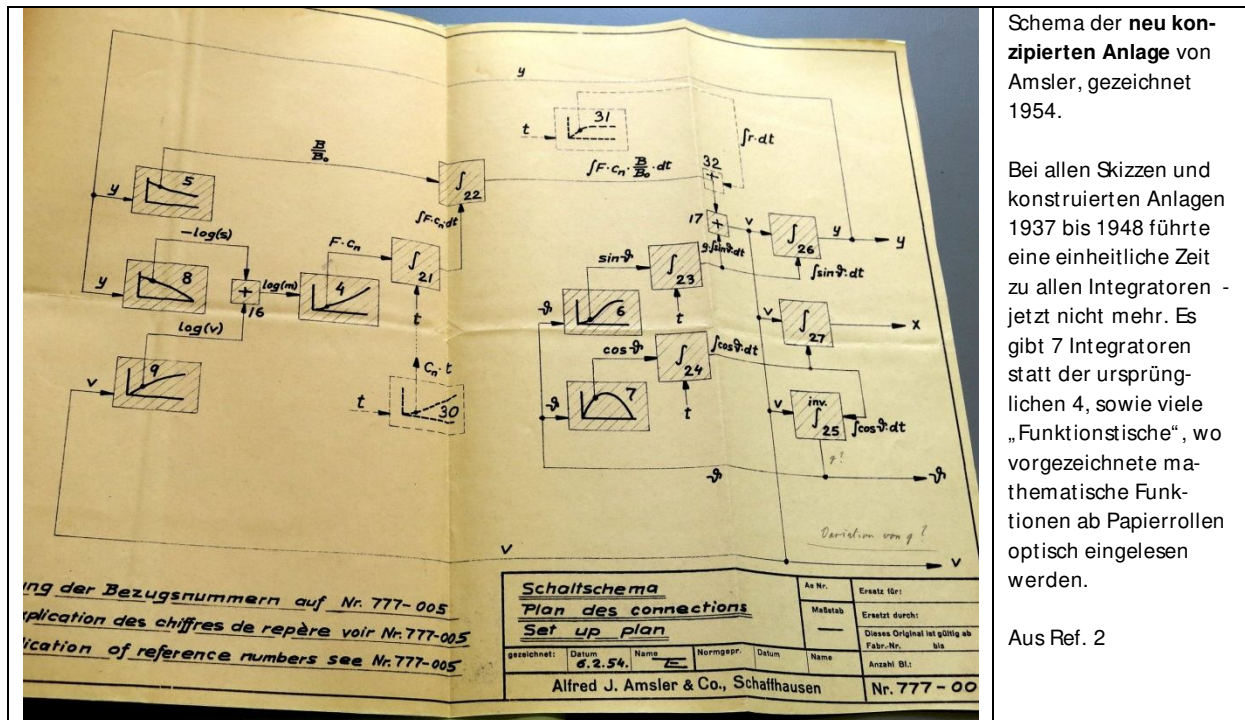 y
31
t
∫r·dt
B/B₀
∫F·cₙ·B/B₀·dt
32
+
y
5
∫ 22
∫F·cₙ·dt
17
+
v
∫ 26
y
y
-log(s)
F·cₙ
∫ 21
sin ϑ
∫ 23
g·∫sinϑ·dt
∫sinϑ·dt
y
8
+
16
log(m)
4
log(v)
t
ϑ
6
t
v
∫ 27
x
cos ϑ
∫ 24
∫cosϑ·dt
v
9
Cₙ·t
t
30
ϑ
7
t
v
inv.
∫ 25
∫cosϑ·dt
g?
ϑ
ϑ
Variation von g?
v
v
ng der Bezugsnummern auf Nr. 777-005
plication des chiffres de repère voir Nr. 777-005
ication of reference numbers see Nr. 777-005
Schaltschema
Plan des connections
Set up plan
As Nr.
Maßstab
—
Ersatz für:
Ersetzt durch:
Dieses Original ist gültig ab
Fabr.-Nr. bis
Anzahl Bl.:
gezeichnet:
Datum
6.2.54.
Name
E
Normgepr.
Datum
Name
Alfred J. Amsler & Co., Schaffhausen
Nr. 777-00
Schema der neu kon-
zipierten Anlage von
Amsler, gezeichnet
1954.
Bei allen Skizzen und
konstruierten Anlagen
1937 bis 1948 führte
eine einheitliche Zeit
zu allen Integratoren -
jetzt nicht mehr. Es
gibt 7 Integratoren
statt der ursprüng-
lichen 4, sowie viele
„Funktionstische“, wo
vorgezeichnete ma-
thematische Funk-
tionen ab Papierrollen
optisch eingelesen
werden.
Aus Ref. 2